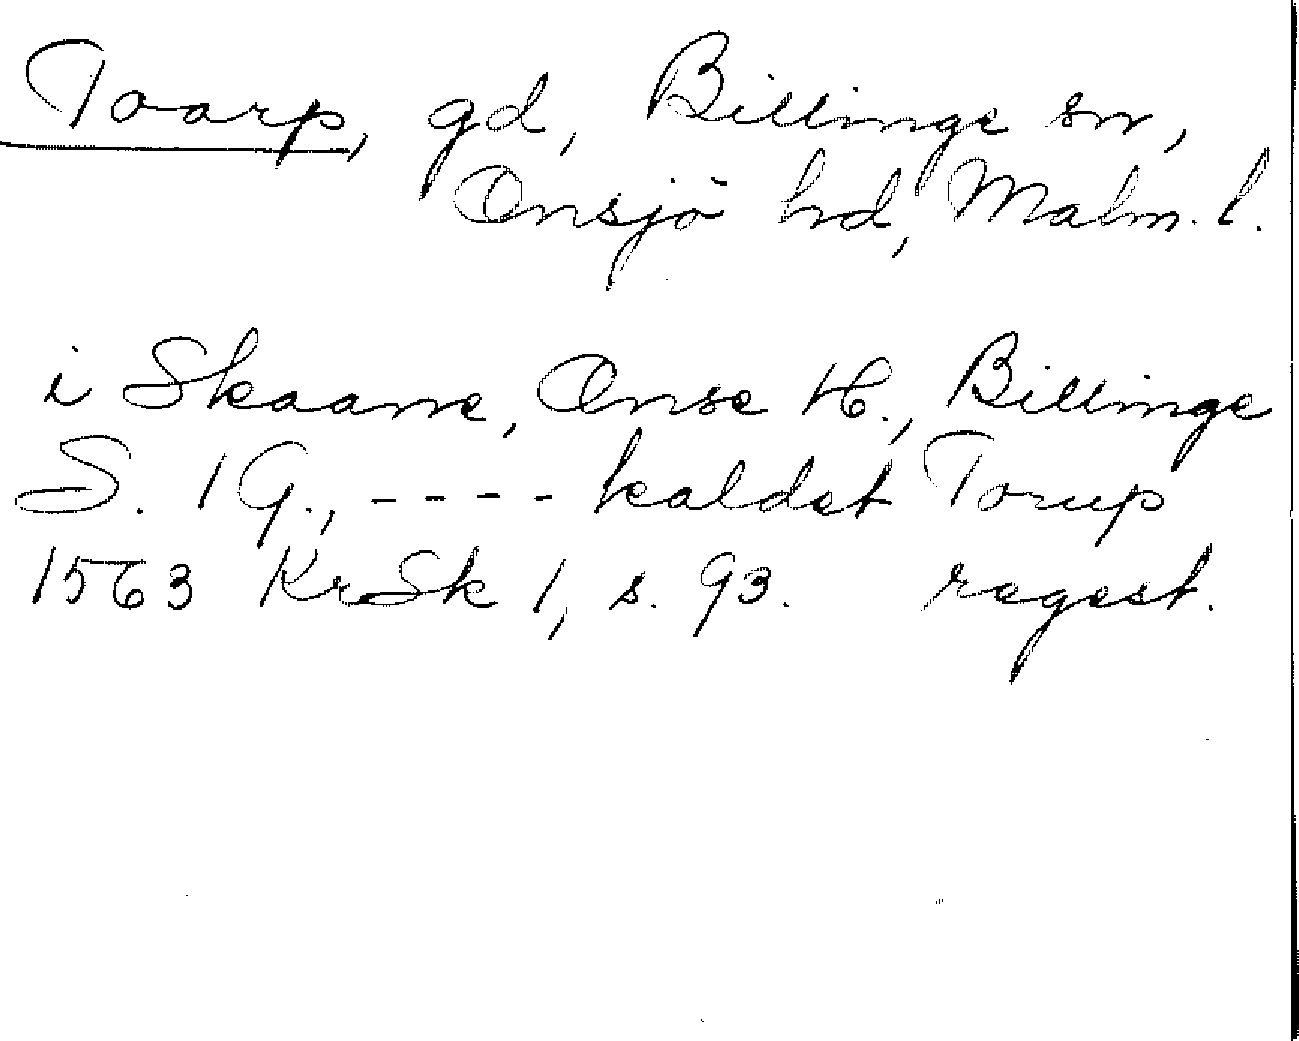 Toarp, gd, Billinge sn,
Onsjö hd, Malm. l.
i Skaane, Onse H., Billinge
S. 1 G., - - - - kaldet Torup
1563 KrSk 1, s. 93. regest.